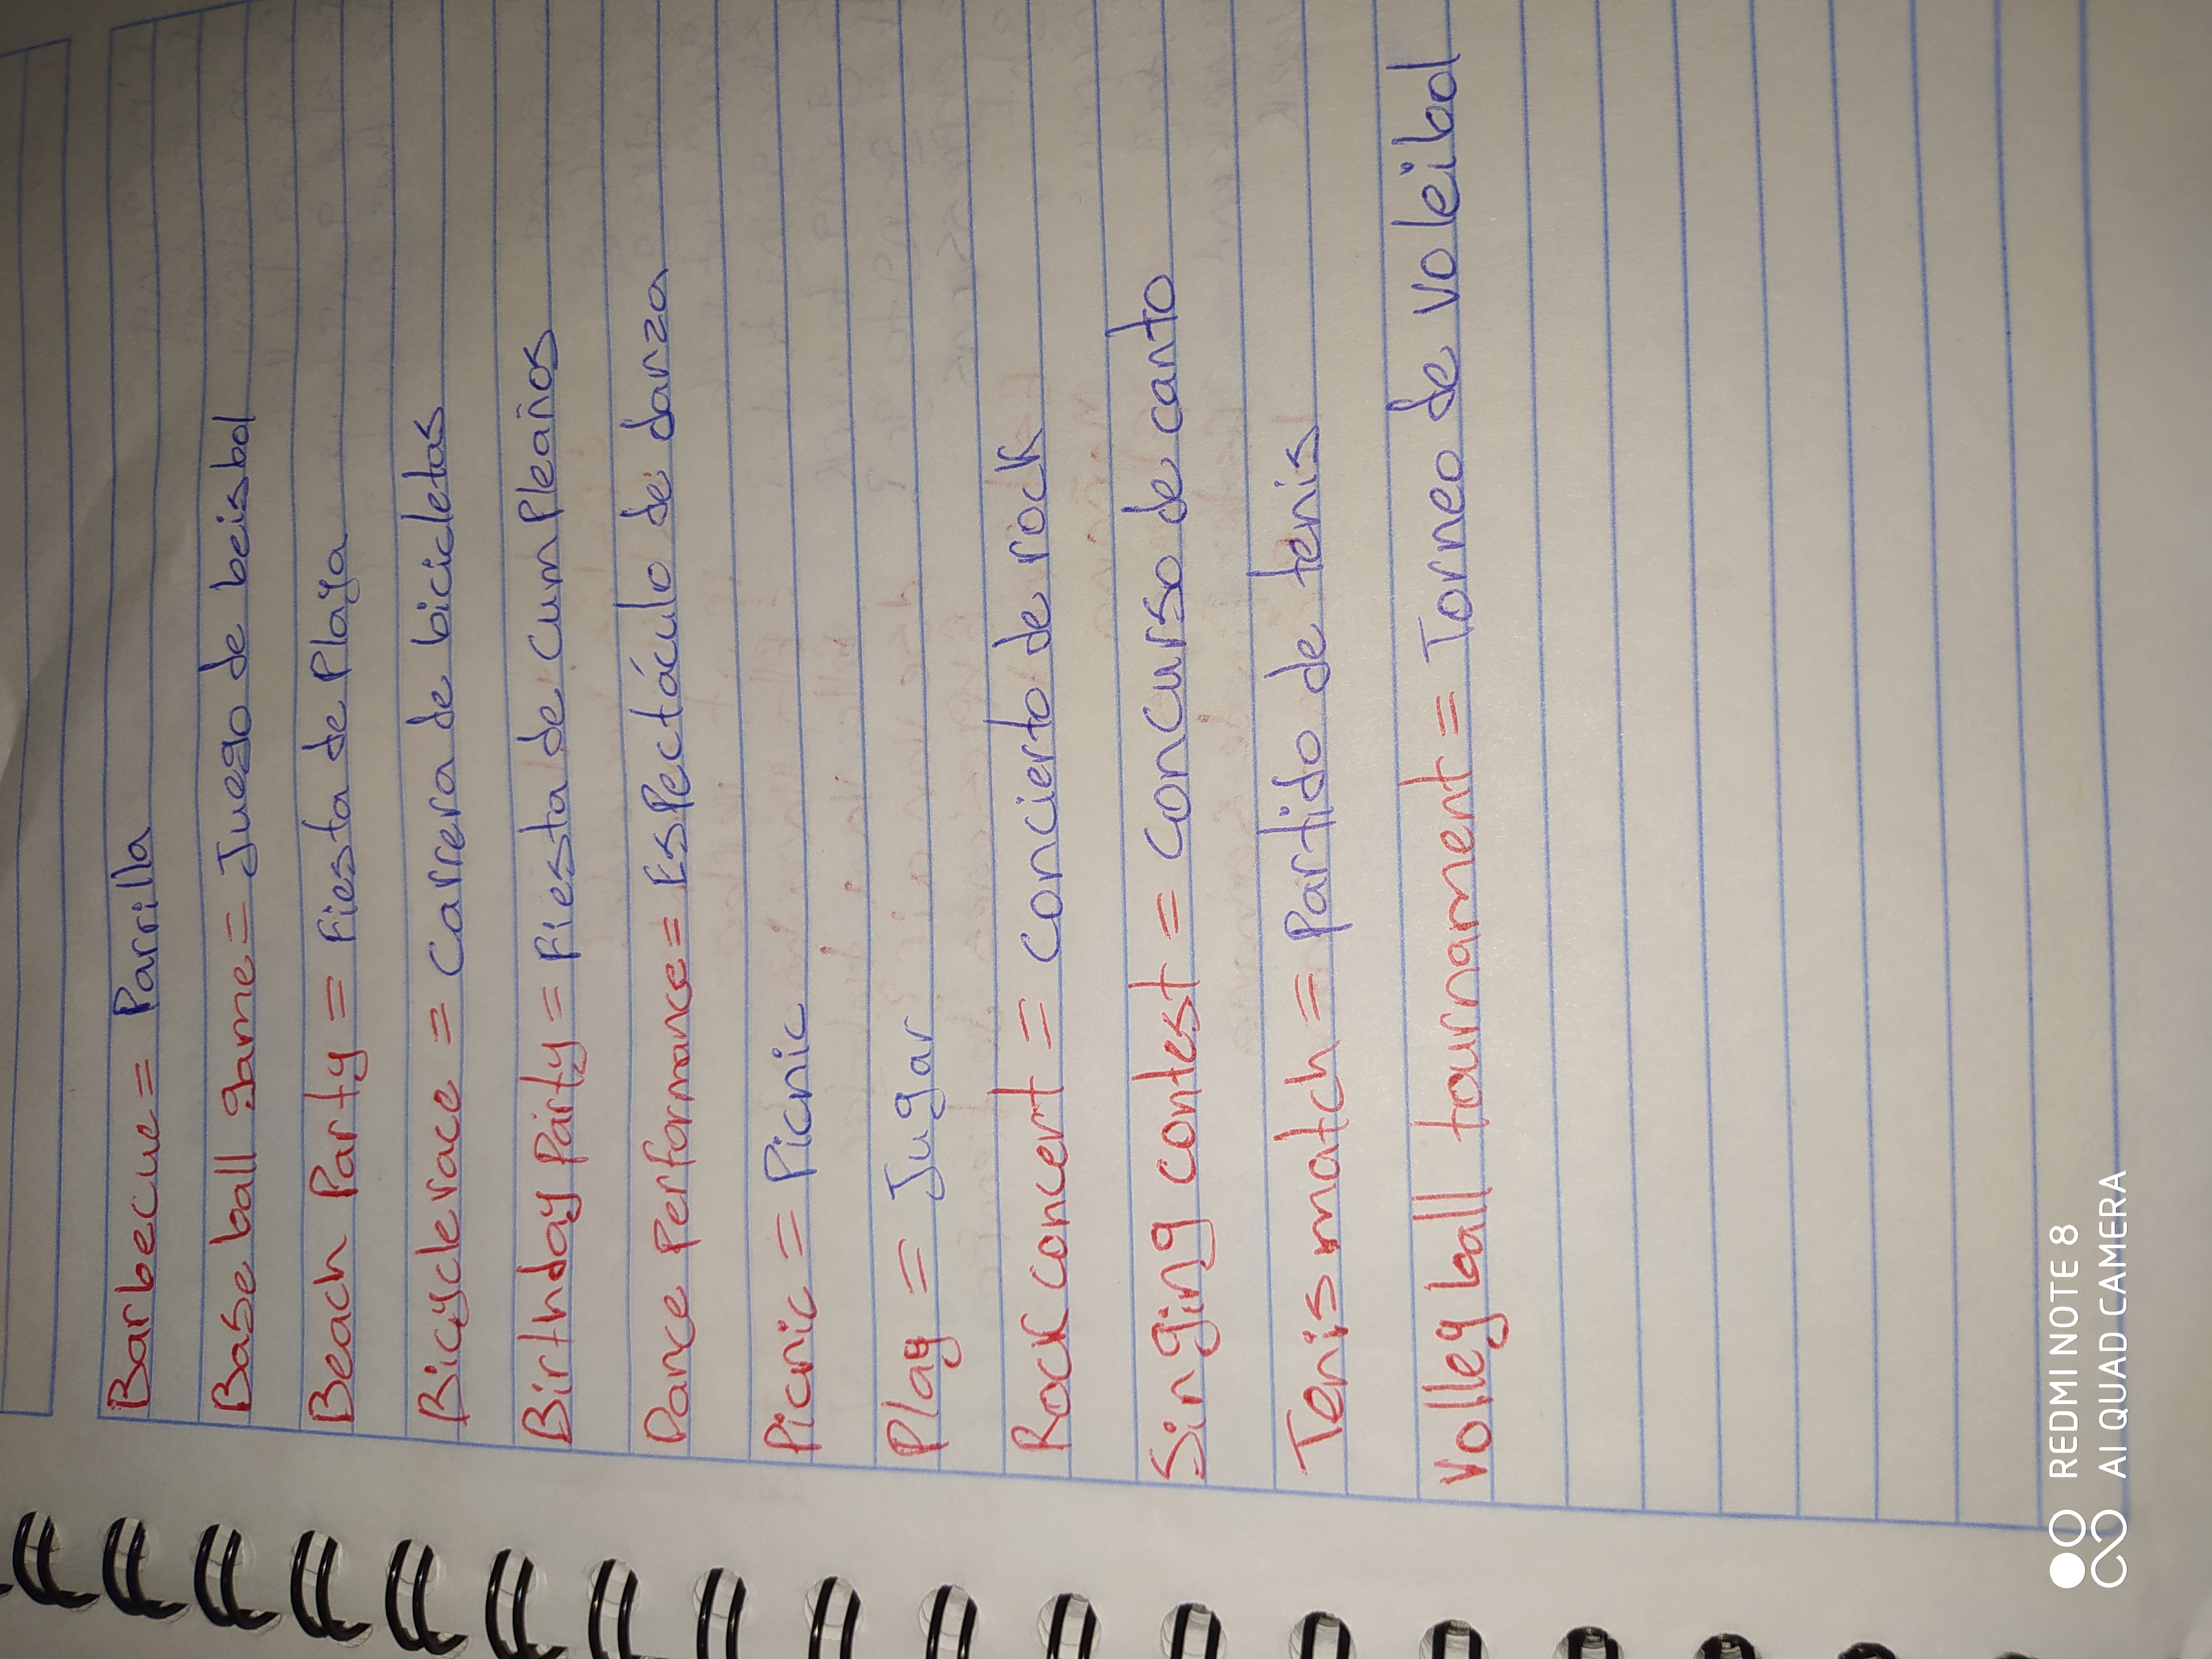 Barbecue = Parrilla
Base ball game = Juego de beisbol
Beach Party = Fiesta de Playa
Bicycle race = Carrera de bicicletas
Birthday Party = Fiesta de Cumpleaños
Dance Performance = Espectáculo de danza
Picnic = Picnic
Play = Jugar
Rock concert = Concierto de rock
Singing contest = Concurso de canto
Tenis match = Partido de tenis
Volley ball tournament = Torneo de voleibol
REDMI NOTE 8
AI QUAD CAMERA